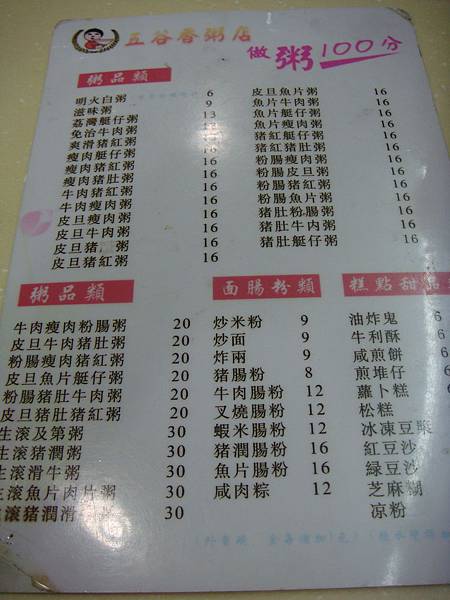 五谷香粥店
做粥100分
粥品類
明火白粥 6
滋味粥 9
荔灣艇仔粥 13
免治牛肉粥
爽滑猪紅粥 16
瘦肉艇仔粥 16
瘦肉猪紅粥 16
瘦肉猪肚粥 16
牛肉猪紅粥 16
牛肉瘦肉粥 16
皮旦瘦肉粥 16
皮旦牛肉粥 16
皮旦猪 粥 16
皮旦猪紅粥 16
皮旦魚片粥 16
魚片牛肉粥 16
魚片艇仔粥 16
魚片瘦肉粥 16
猪紅艇仔粥 16
猪紅猪肚粥 16
粉腸瘦肉粥 16
粉腸皮旦粥 16
粉腸猪紅粥 16
粉腸魚片粥 16
猪肚粉腸粥 16
猪肚牛肉粥 16
猪肚艇仔粥 16
粥品類
牛肉瘦肉粉腸粥 20
皮旦牛肉猪肚粥 20
粉腸瘦肉猪紅粥 20
皮旦魚片艇仔粥 20
粉腸猪肚牛肉粥 20
皮旦猪肚猪紅粥 20
生滚及第粥 30
生滚猪潤粥 30
生滚滑牛粥 30
生滚魚片肉片粥 30
生滚猪潤滑 30
面腸粉類
炒米粉 9
炒面 9
炸兩 9
猪腸粉 8
牛肉腸粉 12
叉燒腸粉 12
蝦米腸粉 12
猪潤腸粉 16
魚片腸粉 16
咸肉粽 12
糕點甜品
油炸鬼 6
牛利酥 6
咸煎餅 6
煎堆仔 6
蘿卜糕
松糕
冰凍豆漿
紅豆沙
綠豆沙
芝麻糊
凉粉